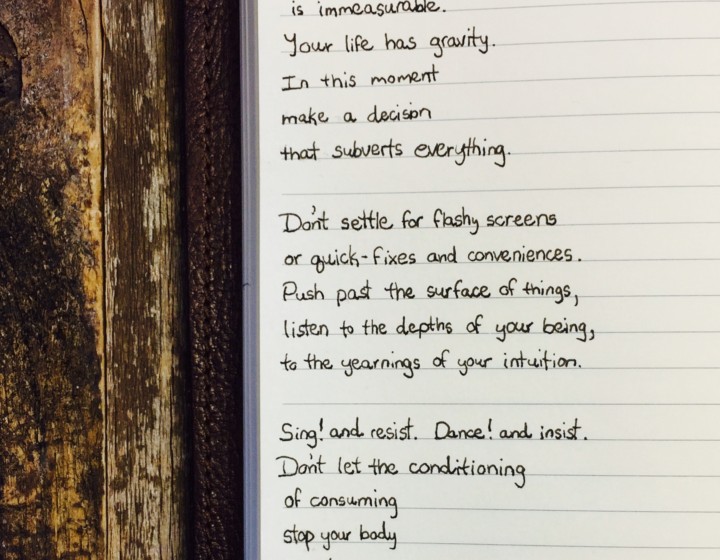 is immeasurable.
Your life has gravity.
In this moment
make a decision
that subverts everything.
Don't settle for flashy screens
or quick-fixes and conveniences.
Push past the surface of things,
listen to the depths of your being,
to the yearnings of your intuition.
Sing! and resist. Dance! and insist.
Don't let the conditioning
of consuming
stop your body